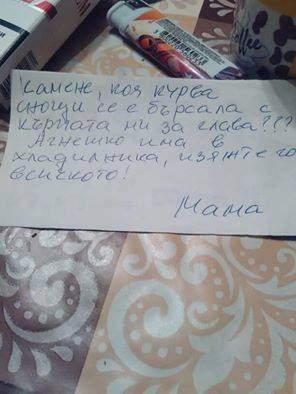 Камене, коя курва
снощи се е бърсала с
кърпата ми за глава???
Агнешко има в
хладилника, изяжте го
всичкото!
Мама